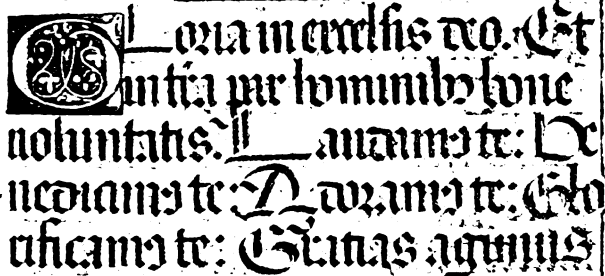 Gloria in excelsis deo. Et
in tr̃a pax hominibꝰ bone
noluntatis. Laudamꝰ te: Be
nedicimꝰ te: Adoramꝰ te: Glo
rificamꝰ te: Gratias agimus